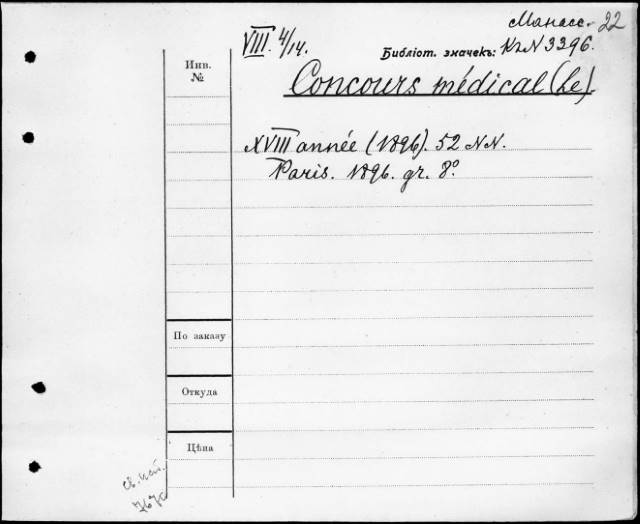 Манасс. 22
VIII. 4/14.
Библіот. значекъ: К2N 3396.
Инв.
№
Concours médical (Le).
XVIII année (1896). 52 NN.
Paris. 1896. gr. 8°.
По заказу
Откуда
Цѣна
7670